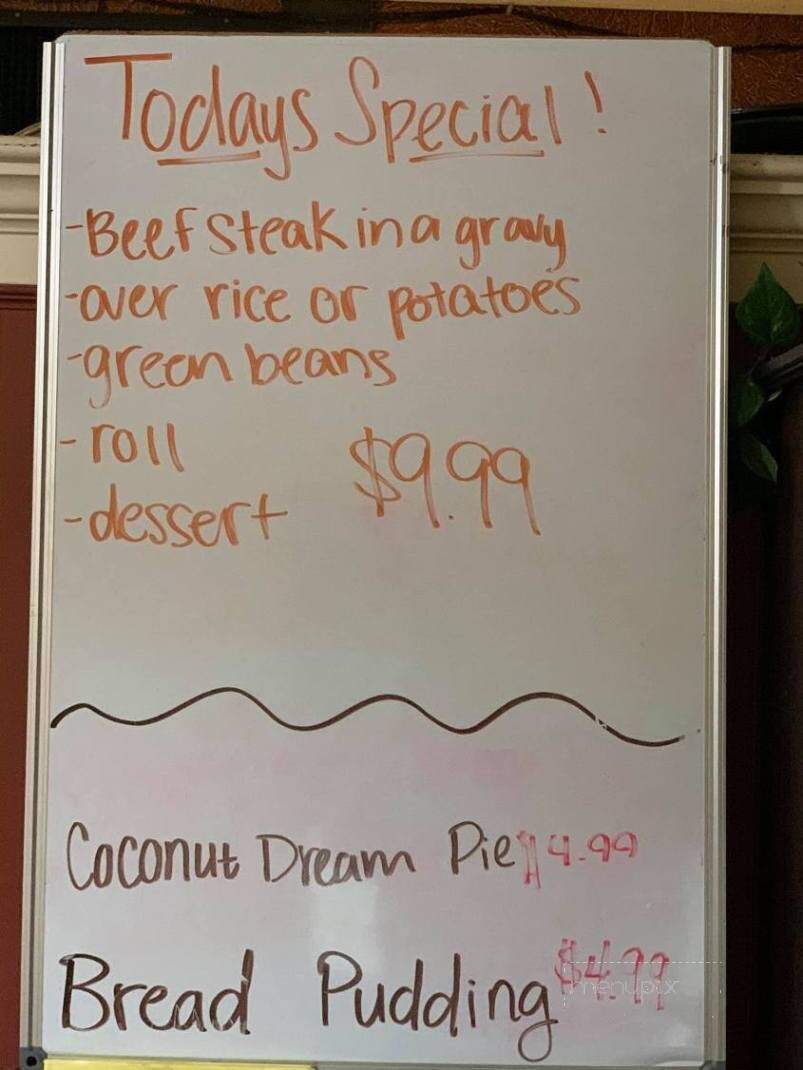 Todays Special!
-Beef steak in a gravy
-over rice or potatoes
-green beans
-roll
$9.99
-dessert
Coconut Dream Pie $4.99
Bread Pudding $4.99
menupix